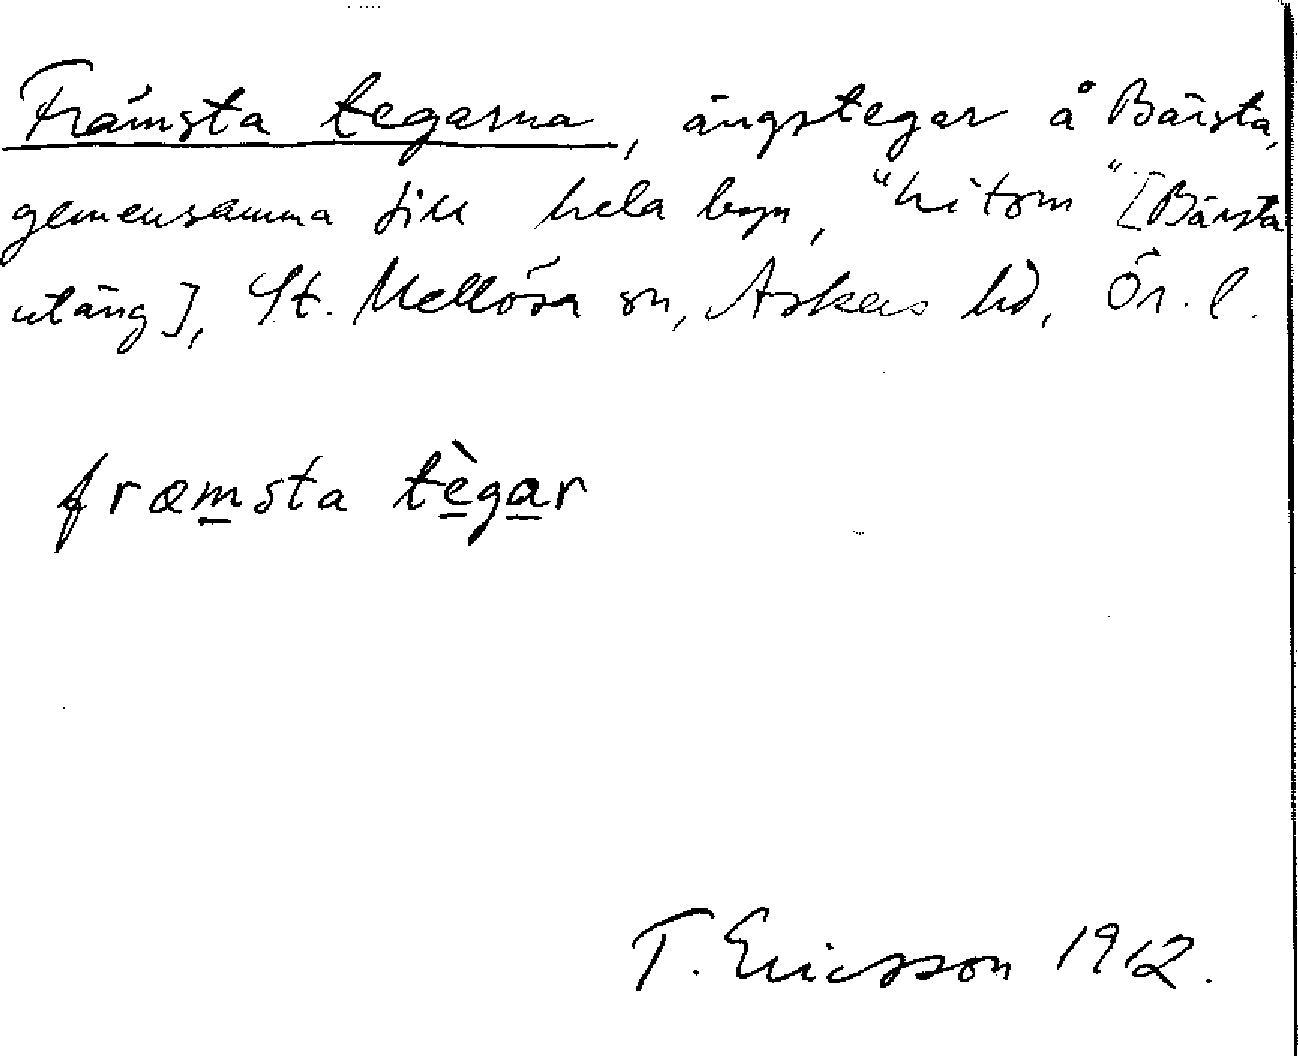 Främsta tegarna, ängstegar å Bärsta,
gemensamma till hela byn, "hitom" [Bärsta
utäng], St. Mellösa sn, Askers hd, Ör. l.
fræmsta tègar
T. Ericsson 1912.